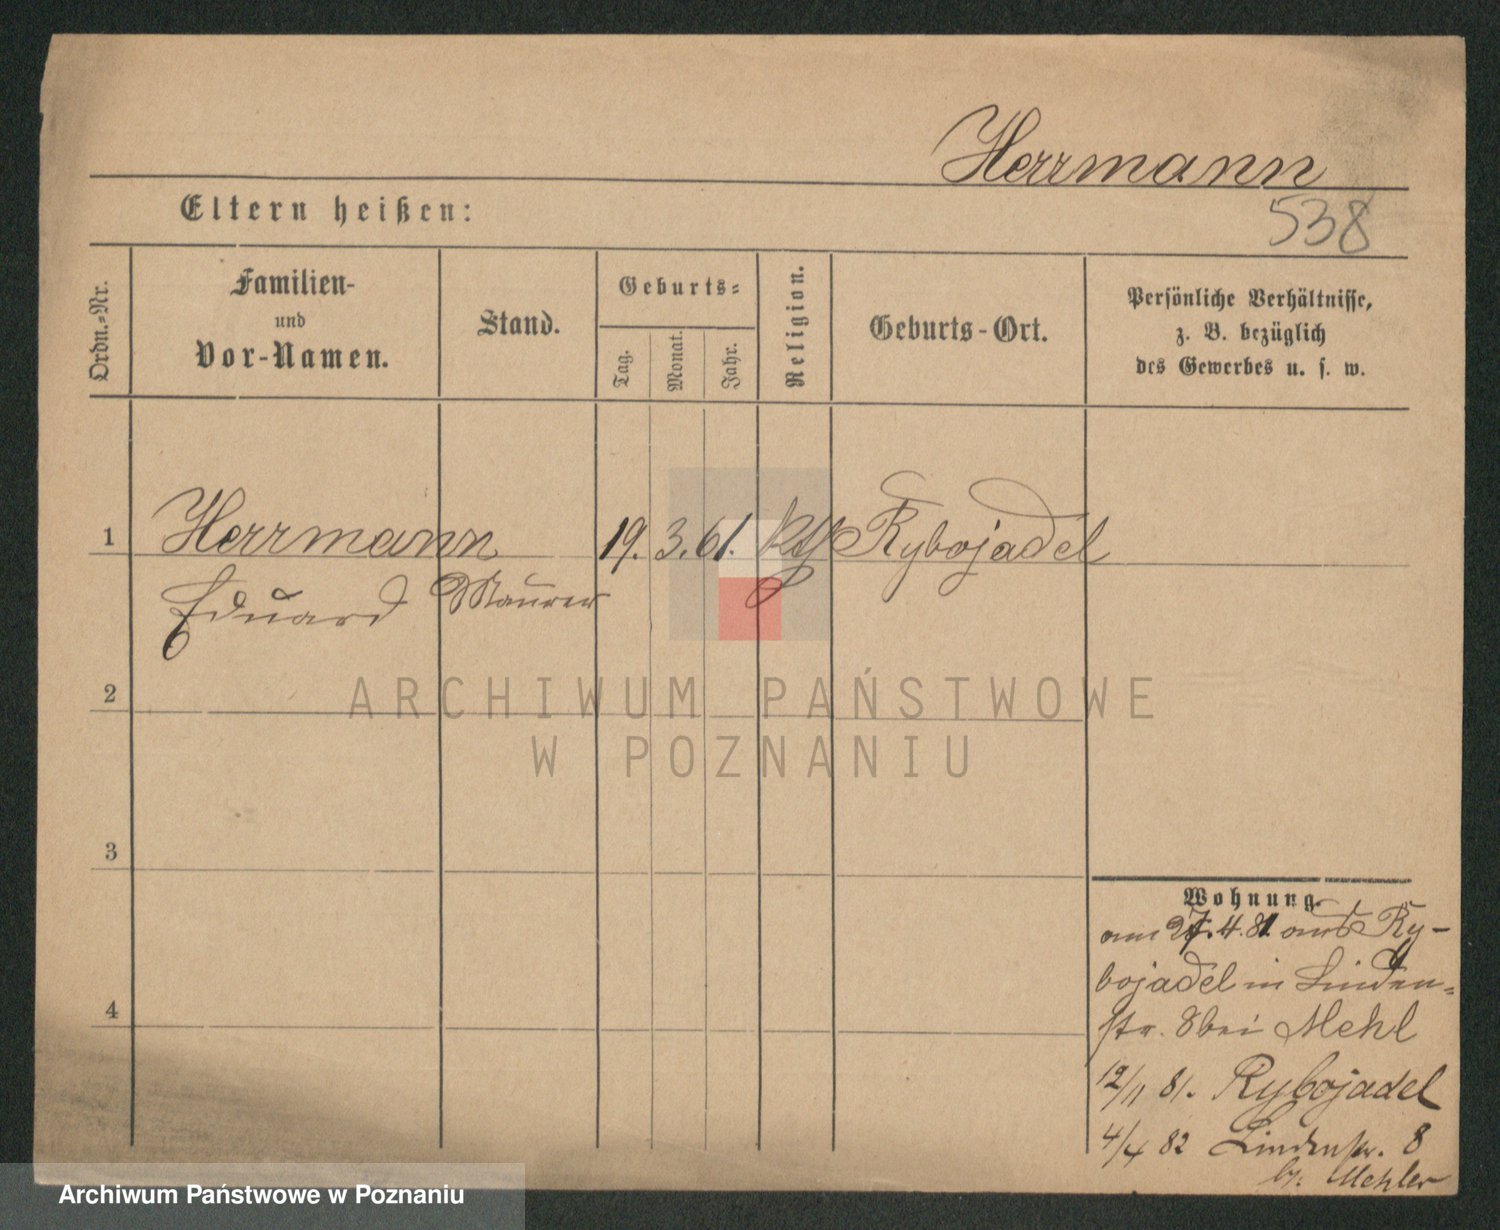 Herrmann
538
Eltern heißen:
Ordn.=Nr.
Familien-
und
Vor-Namen.
Stand.
Geburts=
Tag.
Monat.
Jahr.
Religion.
Geburts-Ort.
Persönliche Verhältnisse,
z. B. bezüglich
des Gewerbes u. s. w.
1 Herrmann 19. 3. 61. Rybojadel
Eduard Maurer
2
ARCHIWUM PAŃSTWOWE
W POZNANIU
3
4
Wohnung.
am 27. 4. 81. aus Ry-
bojadel in Linden=
str. 8 bei Mehl
12/11 81. Rybojadel
4/4 82 Lindenstr. 8
Mehler
Archiwum Państwowe w Poznaniu